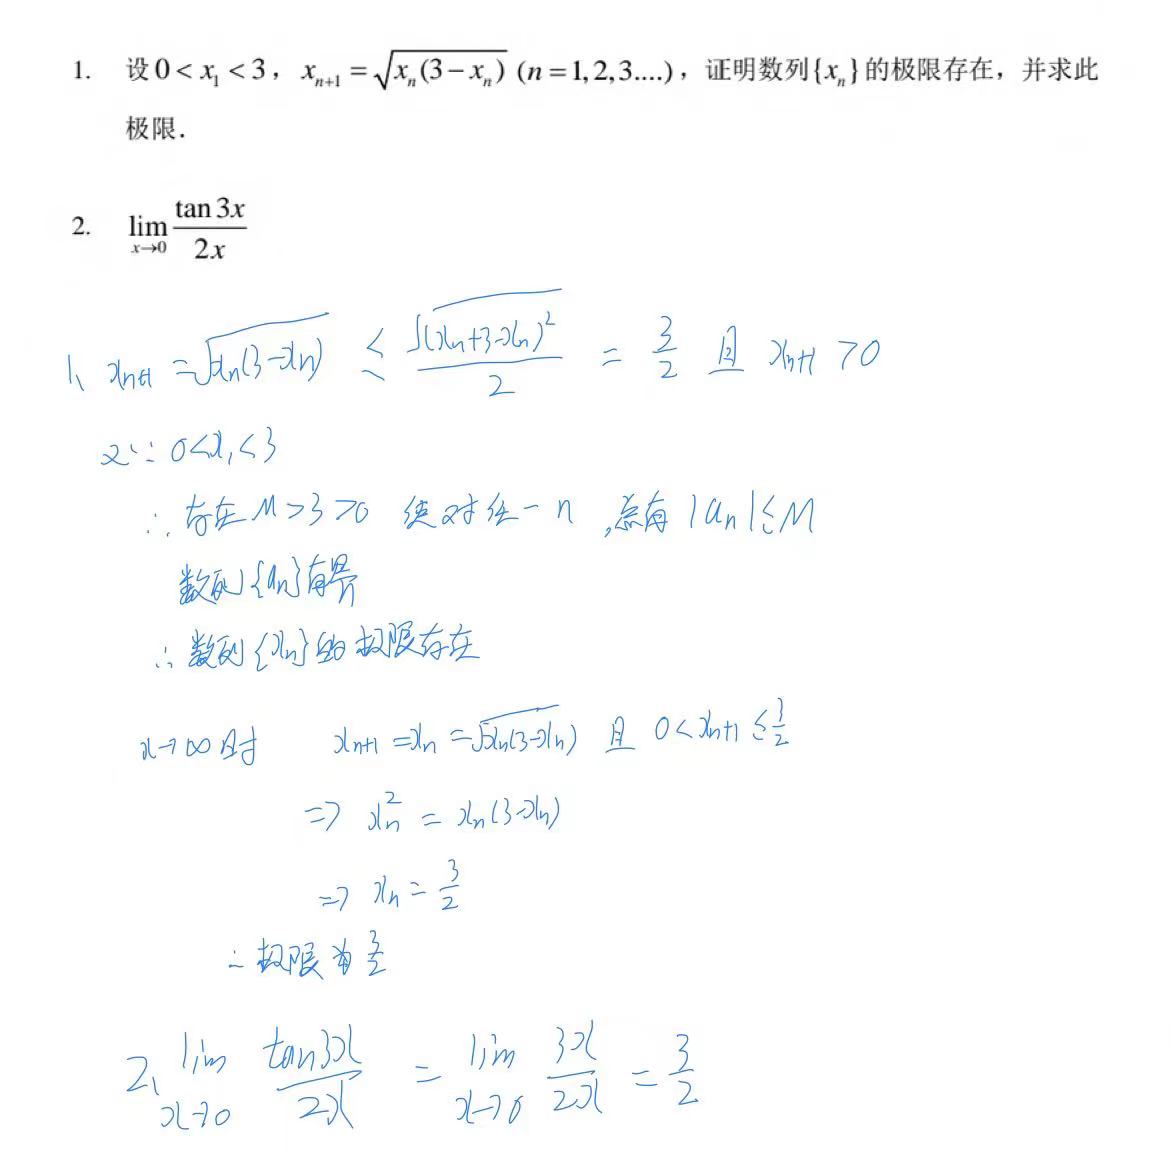 1. 设 0 < x₁ < 3，xₙ₊₁ = √(xₙ(3 − xₙ)) (n = 1, 2, 3....)，证明数列{xₙ}的极限存在，并求此
极限.
2. lim_{x→0} tan 3x / 2x
1、xₙ₊₁ = √(xₙ(3-xₙ)) ≤ √((xₙ+3-xₙ)²) / 2 = 3/2 且 xₙ₊₁ > 0
又∵ 0<x₁<3
∴ 存在 M>3>0 使对任一 n ,总有 |aₙ|≤M
数列{aₙ}有界
∴ 数列{xₙ}的极限存在
x→∞时 xₙ₊₁ = xₙ = √(xₙ(3-xₙ)) 且 0<xₙ₊₁ ≤ 3/2
=> xₙ² = xₙ(3-xₙ)
=> xₙ = 3/2
∴ 极限为 3/2
2、lim_{x→0} tan3x / 2x = lim_{x→0} 3x / 2x = 3/2